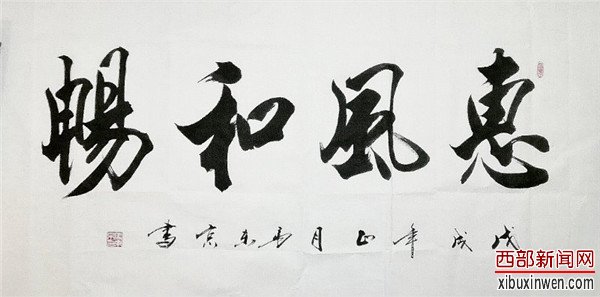 惠風和暢
戊戌年正月马东京書
西部新闻网
xibuxinwen.com